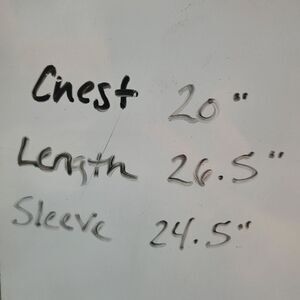 Chest 20"
Length 26.5"
Sleeve 24.5"